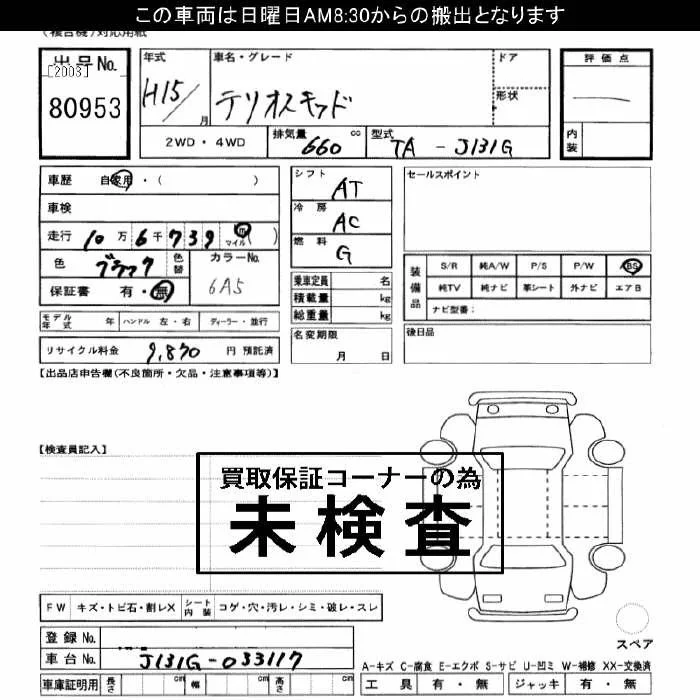 この車両は日曜日AM8:30からの搬出となります
(複合機)対応用紙
出品No.
[2003]
80953
年式
H15/月
車名・グレード
テリオスキッド
ドア
形状
評価点
内装
2WD・4WD
排気量 660 cc
型式 TA-J131G
車歴 自家用・( )
車検
走行 10万6千739 ㎞ マイル( )
色 ブラック 色替
カラーNo. 6A5
保証書 有・無
シフト AT
冷房 AC
燃料 G
乗車定員 名
積載量 kg
総重量 kg
セールスポイント
装備品
S/R 純A/W P/S P/W BS
純TV 純ナビ 革シート 外ナビ エアB
ナビ型番:
モデル年式 年 ハンドル 左・右 ディーラー・並行
リサイクル料金 9,870 円 預託済
名変期限
月 日
後日品
【出品店申告欄(不良箇所・欠品・注意事項等)】
【検査員記入】
買取保証コーナーの為
未検査
FW キズ・トビ石・割レX シート内装 コゲ・穴・汚レ・シミ・破レ・スレ
スペア
登録No.
車台No. J131G-033117
A-キズ C-腐食 E-エクボ S-サビ U-凹ミ W-補修 XX-交換済
車庫証明用 長さ cm 幅 cm 高さ cm
工具 有・無 ジャッキ 有・無